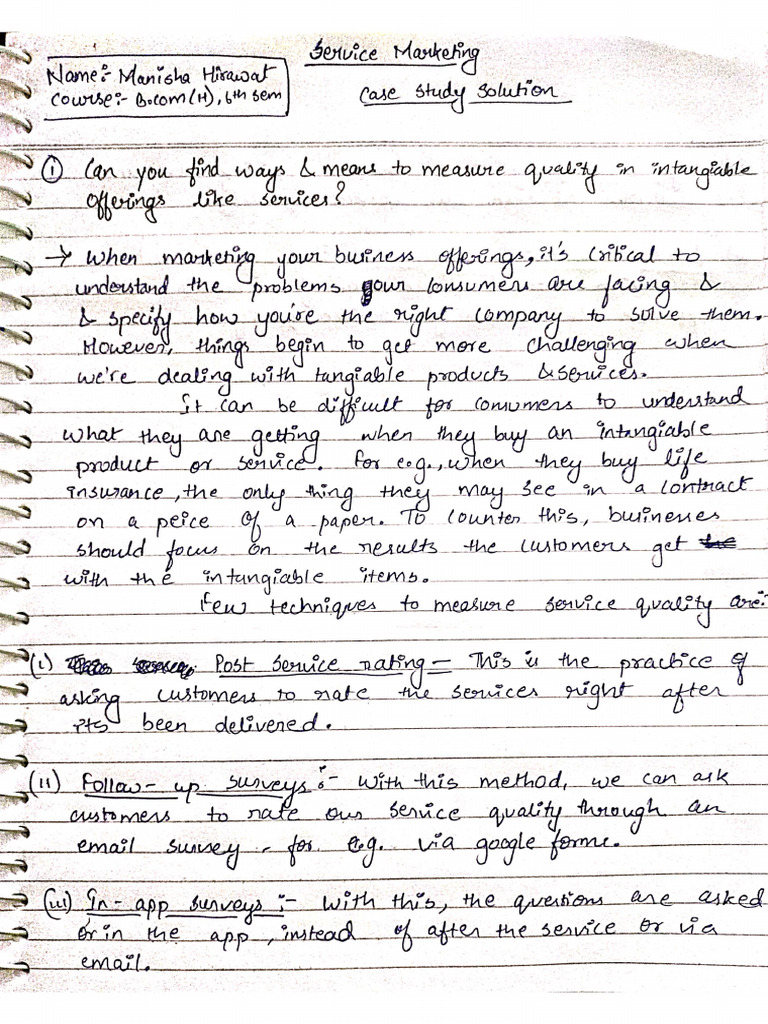 Service Marketing
Name:- Manisha Hirawat
Course:- B.com(H), 6th sem
Case Study Solution
① Can you find ways & means to measure quality in intangiable
offerings like services?
→ When marketing your business offerings, it's critical to
understand the problems your consumers are facing &
& specify how you're the right company to solve them.
However, things begin to get more challenging when
we're dealing with tangiable products & services.
It can be difficult for consumers to understand
what they are getting when they buy an intangiable
product or service. For e.g., when they buy life
insurance, the only thing they may see in a contract
on a peice of a paper. To counter this, businesses
should focus on the results the customers get the
with the intangiable items.
Few techniques to measure service quality are:
(i) Post Service rating – This is the practice of
asking customers to rate the services right after
its been delivered.
(ii) Follow-up surveys:- With this method, we can ask
customers to rate our service quality through an
email survey. for e.g. via google forms.
(iii) In-app surveys:- With this, the questions are asked
or in the app, instead of after the service or via
email.